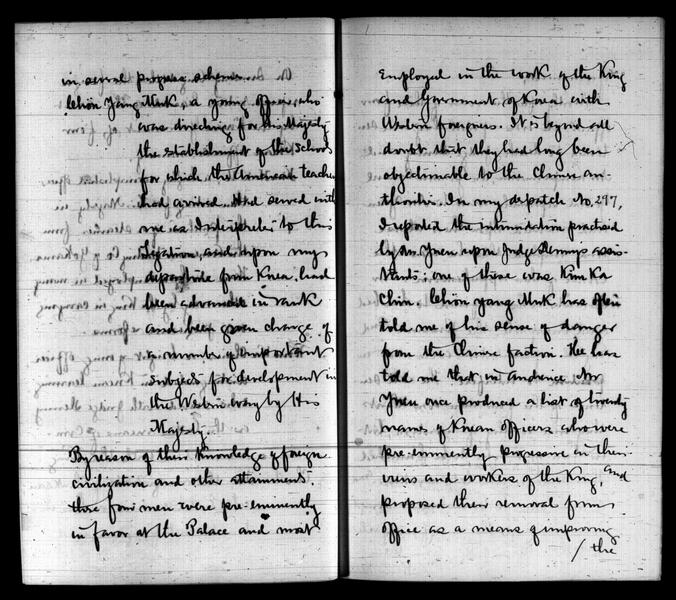 in several progress schemes.
Chön Yang Muk, a young officer, who
was directing for His Majesty
the establishment of the Schools
for which the American teachers
had arrived. Had served with
me as Interpreter to this
Legation, and upon my
departure from Korea, had
been advanced in rank
and been given charge of
a number of important
subjects for development in
the Western way by His
Majesty.
By reason of their knowledge of foreign
civilization and other attainments
these four men were pre-eminently
in favor at the Palace and most
employed in the work of the King
and Government of Korea with
Western foreigners. It is beyond all
doubt that they had long been
objectionable to the Chinese au-
thorities. In my despatch No. 297,
I reported the intimidation practised
by Mr. Yuen upon Judge Denny's assis-
tants; one of these was Kim Ka
Chin. Chön Yang Muk has often
told me of his sense of danger
from the Chinese faction. He has
told me that in audience Mr
Yuen once produced a list of twenty
names of Korean officers who were
pre-eminently progressive in their
views and workers of the King, and
proposed their removal from
office as a means of improving
/ the